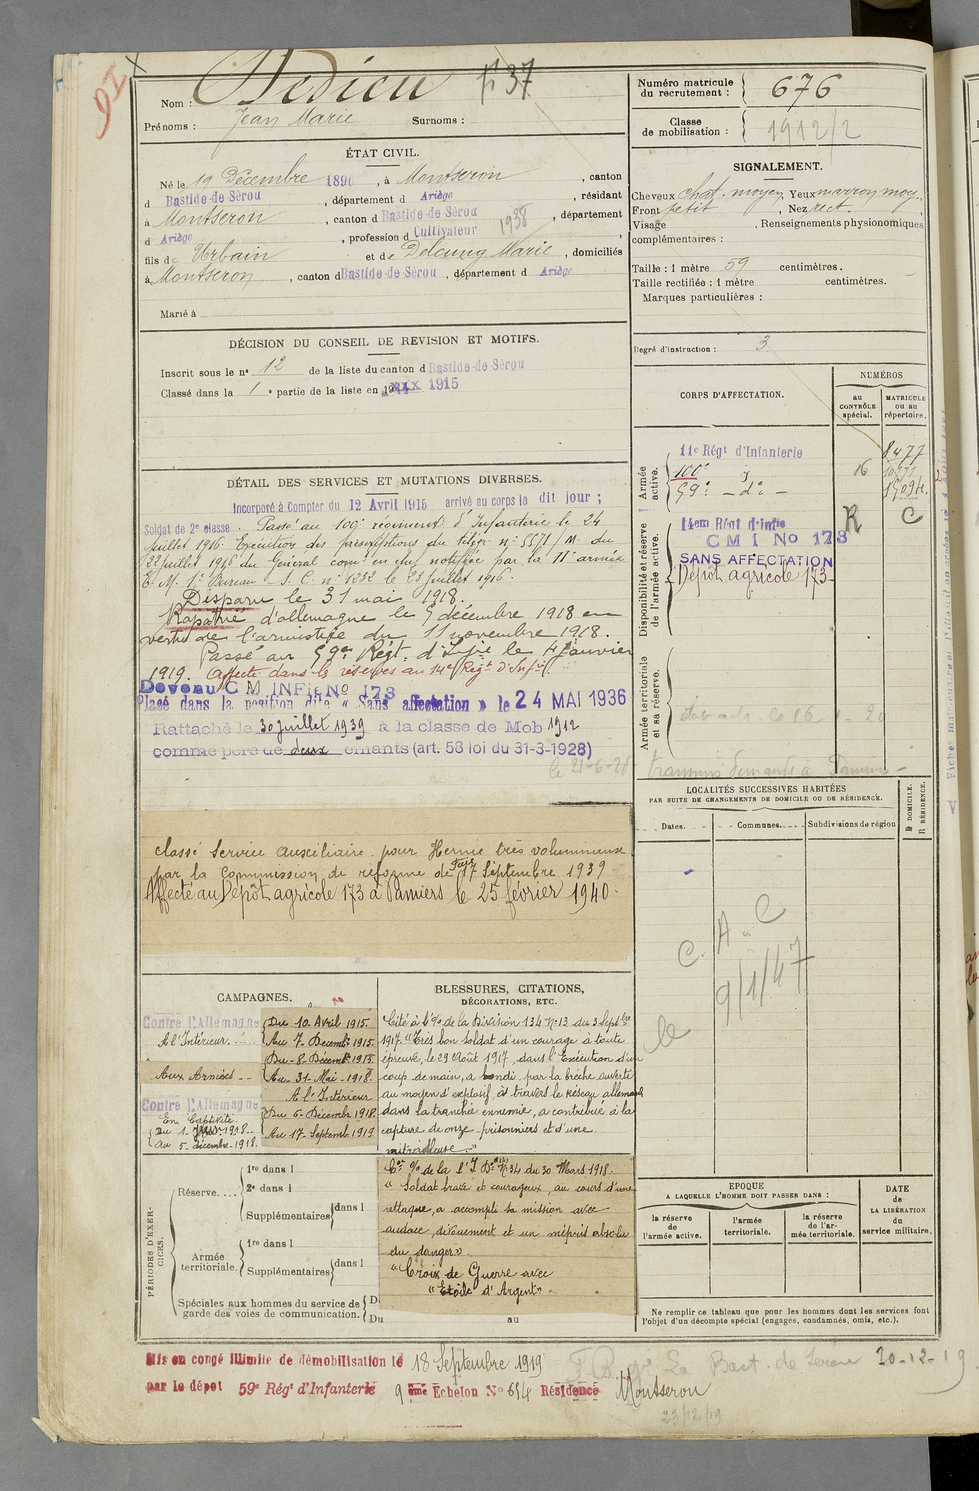 Nom : Dedieu N 37
Prénoms : Jean Marie Surnoms :
ÉTAT CIVIL.
Né le 19 Décembre 1896, à Montseron, canton
d Bastide-de-Sérou, département d Ariège, résidant
à Montseron, canton d Bastide-de-Sérou, département
d Ariège, profession d Cultivateur 1938
fils de Urbain et de Marie, domiciliés
à Montseron, canton d Bastide-de-Sérou, département d Ariège
Marié à
DÉCISION DU CONSEIL DE REVISION ET MOTIFS.
Inscrit sous le n° 12 de la liste du canton d Bastide-de-Sérou
Classé dans la 1e partie de la liste en 1915
DÉTAIL DES SERVICES ET MUTATIONS DIVERSES.
Incorporé à Compter du 12 Avril 1915 arrivé au corps le dit jour ;
Soldat de 2e classe. Passé au 100e régiment d'Infanterie le 24
Juillet 1916. Exécution des prescriptions du télégr. n° 5571/M. du
22 Juillet 1916 du Général com. en chef notifiée par la 11e armée
E. M. 1er Bureau S. C. n° 1252 le 23 Juillet 1916.
Disparu le 31 mai 1918.
Rapatrié d'allemagne le 5 décembre 1918 en
vertu de l'armistice du 11 novembre 1918.
Passé au 59e Régt. d'Infie le 4 Janvier
1919. Affecté dans les réserves au 14e Régt d'Infie.
Devenu C M INFIE No 173
Placé dans la position dite « Sans affectation » le 24 MAI 1936
Rattaché le 30 Juillet 1939 à la classe de Mob 1912
comme père de deux enfants (art. 58 loi du 31-3-1928)
classé Service auxiliaire pour Hernie très volumineuse
par la Commission de réforme de du 17 Septembre 1939
Affecté au Dépôt agricole 173 à Pamiers le 25 février 1940
CAMPAGNES.
Contre l'Allemagne
A l'Intérieur. Du 10 Avril 1915.
Au 7 Décembre 1915.
Aux Armées Du 8 Décembre 1915.
Au 31 Mai 1918.
Contre l'Allemagne
En Captivité
Du 1. 1918
au 5 décembre 1918.
A l'Intérieur
Du 6 Décembre 1918
Au 17 Septemb. 1919
BLESSURES, CITATIONS,
DÉCORATIONS, ETC.
Cité à l'O/ de la Division 134 N° 13 du 3 Septbre
1917. "Très bon soldat d'un courage à toute
épreuve, le 29 Août 1917, dans l'Exécution d'un
coup de main, a bondi par la brèche ouverte
au moyen d'explosif, à travers le réseau allemand
dans la tranchée ennemie, a contribué à la
capture de onze prisonniers et d'une
mitrailleuse"
de la l'I. D. N° 34 du 30 Mars 1918.
"Soldat brave et courageux, au cours d'une
attaque, a accompli sa mission avec
audace, dévouement et un mépris absolu
du danger".
"Croix de Guerre avec
"Etoile d'Argent"
PÉRIODES D'EXERCICES.
Réserve.... 1re dans l
2e dans l
Supplémentaires dans l
Armée territoriale. 1re dans l
Supplémentaires dans l
Spéciales aux hommes du service de D
garde des voies de communication. Du au
Mis en congé illimité de démobilisation le 18 Septembre 1919
par le dépôt 59e Régt d'Infanterie 9 ème Echelon No 614 Résidence Montseron
La Bast. de Serou 20-12-19
23/12/19
Numéro matricule
du recrutement : 676
Classe
de mobilisation : 1912/2
SIGNALEMENT.
Cheveux chat. moyen Yeux marron moy.
Front petit, Nez rect.
Visage , Renseignements physionomiques
complémentaires :
Taille : 1 mètre 59 centimètres.
Taille rectifiée : 1 mètre centimètres.
Marques particulières :
Degré d'instruction : 3
CORPS D'AFFECTATION.
NUMÉROS
au CONTRÔLE spécial.
MATRICULE ou au répertoire.
Armée active.
11e Régt d'Infanterie 8477
100e d° 16
59e - d° - 15094
Disponibilité et réserve de l'armée active.
14em Régt d'Infie R C
C M I No 173
SANS AFFECTATION
Dépôt agricole 173
Armée territoriale et sa réserve.
le 21-6-28 transmis demande à Pamiers
LOCALITÉS SUCCESSIVES HABITÉES
PAR SUITE DE CHANGEMENTS DE DOMICILE OU DE RÉSIDENCE.
Dates. Communes. Subdivisions de région D DOMICILE. R RÉSIDENCE.
C. A. C
le 9/1/47
EPOQUE
A LAQUELLE L'HOMME DOIT PASSER DANS :
la réserve de l'armée active.
l'armée territoriale.
la réserve de l'armée territoriale.
DATE
DE
LA LIBÉRATION
du
service militaire.
Ne remplir ce tableau que pour les hommes dont les services font
l'objet d'un décompte spécial (engagés, condamnés, omis, etc.).